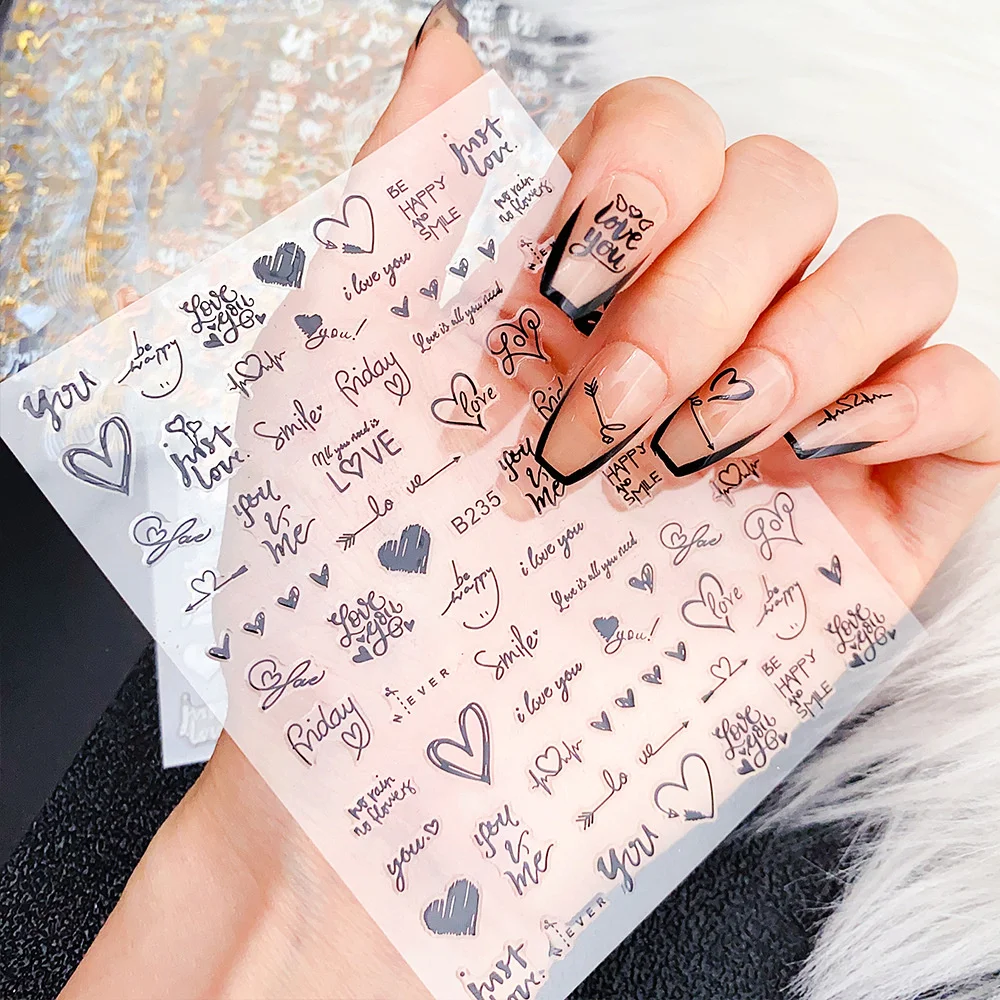 just
love.
BE
HAPPY
AND
SMILE
no rain
no flowers
i love you
LOVE
YOU
be
happy
you!
Love is all you need
Love
you
Friday
love
smile
just
love.
All you need is
LOVE
love
you
&
me
lo ve
B235
you
&
me
HAPPY
AND
SMILE
love
you
i love you
Love is all you need
love
Love
be
happy
love
be
happy
LOVE
YOU
you!
LOVE
YOU
smile
love
NEVER
i love you
BE
HAPPY
AND
SMILE
Friday
LOVE
YOU
lo ve
no rain
no flowers
you
&
me
you.
you
NEVER
just
love.